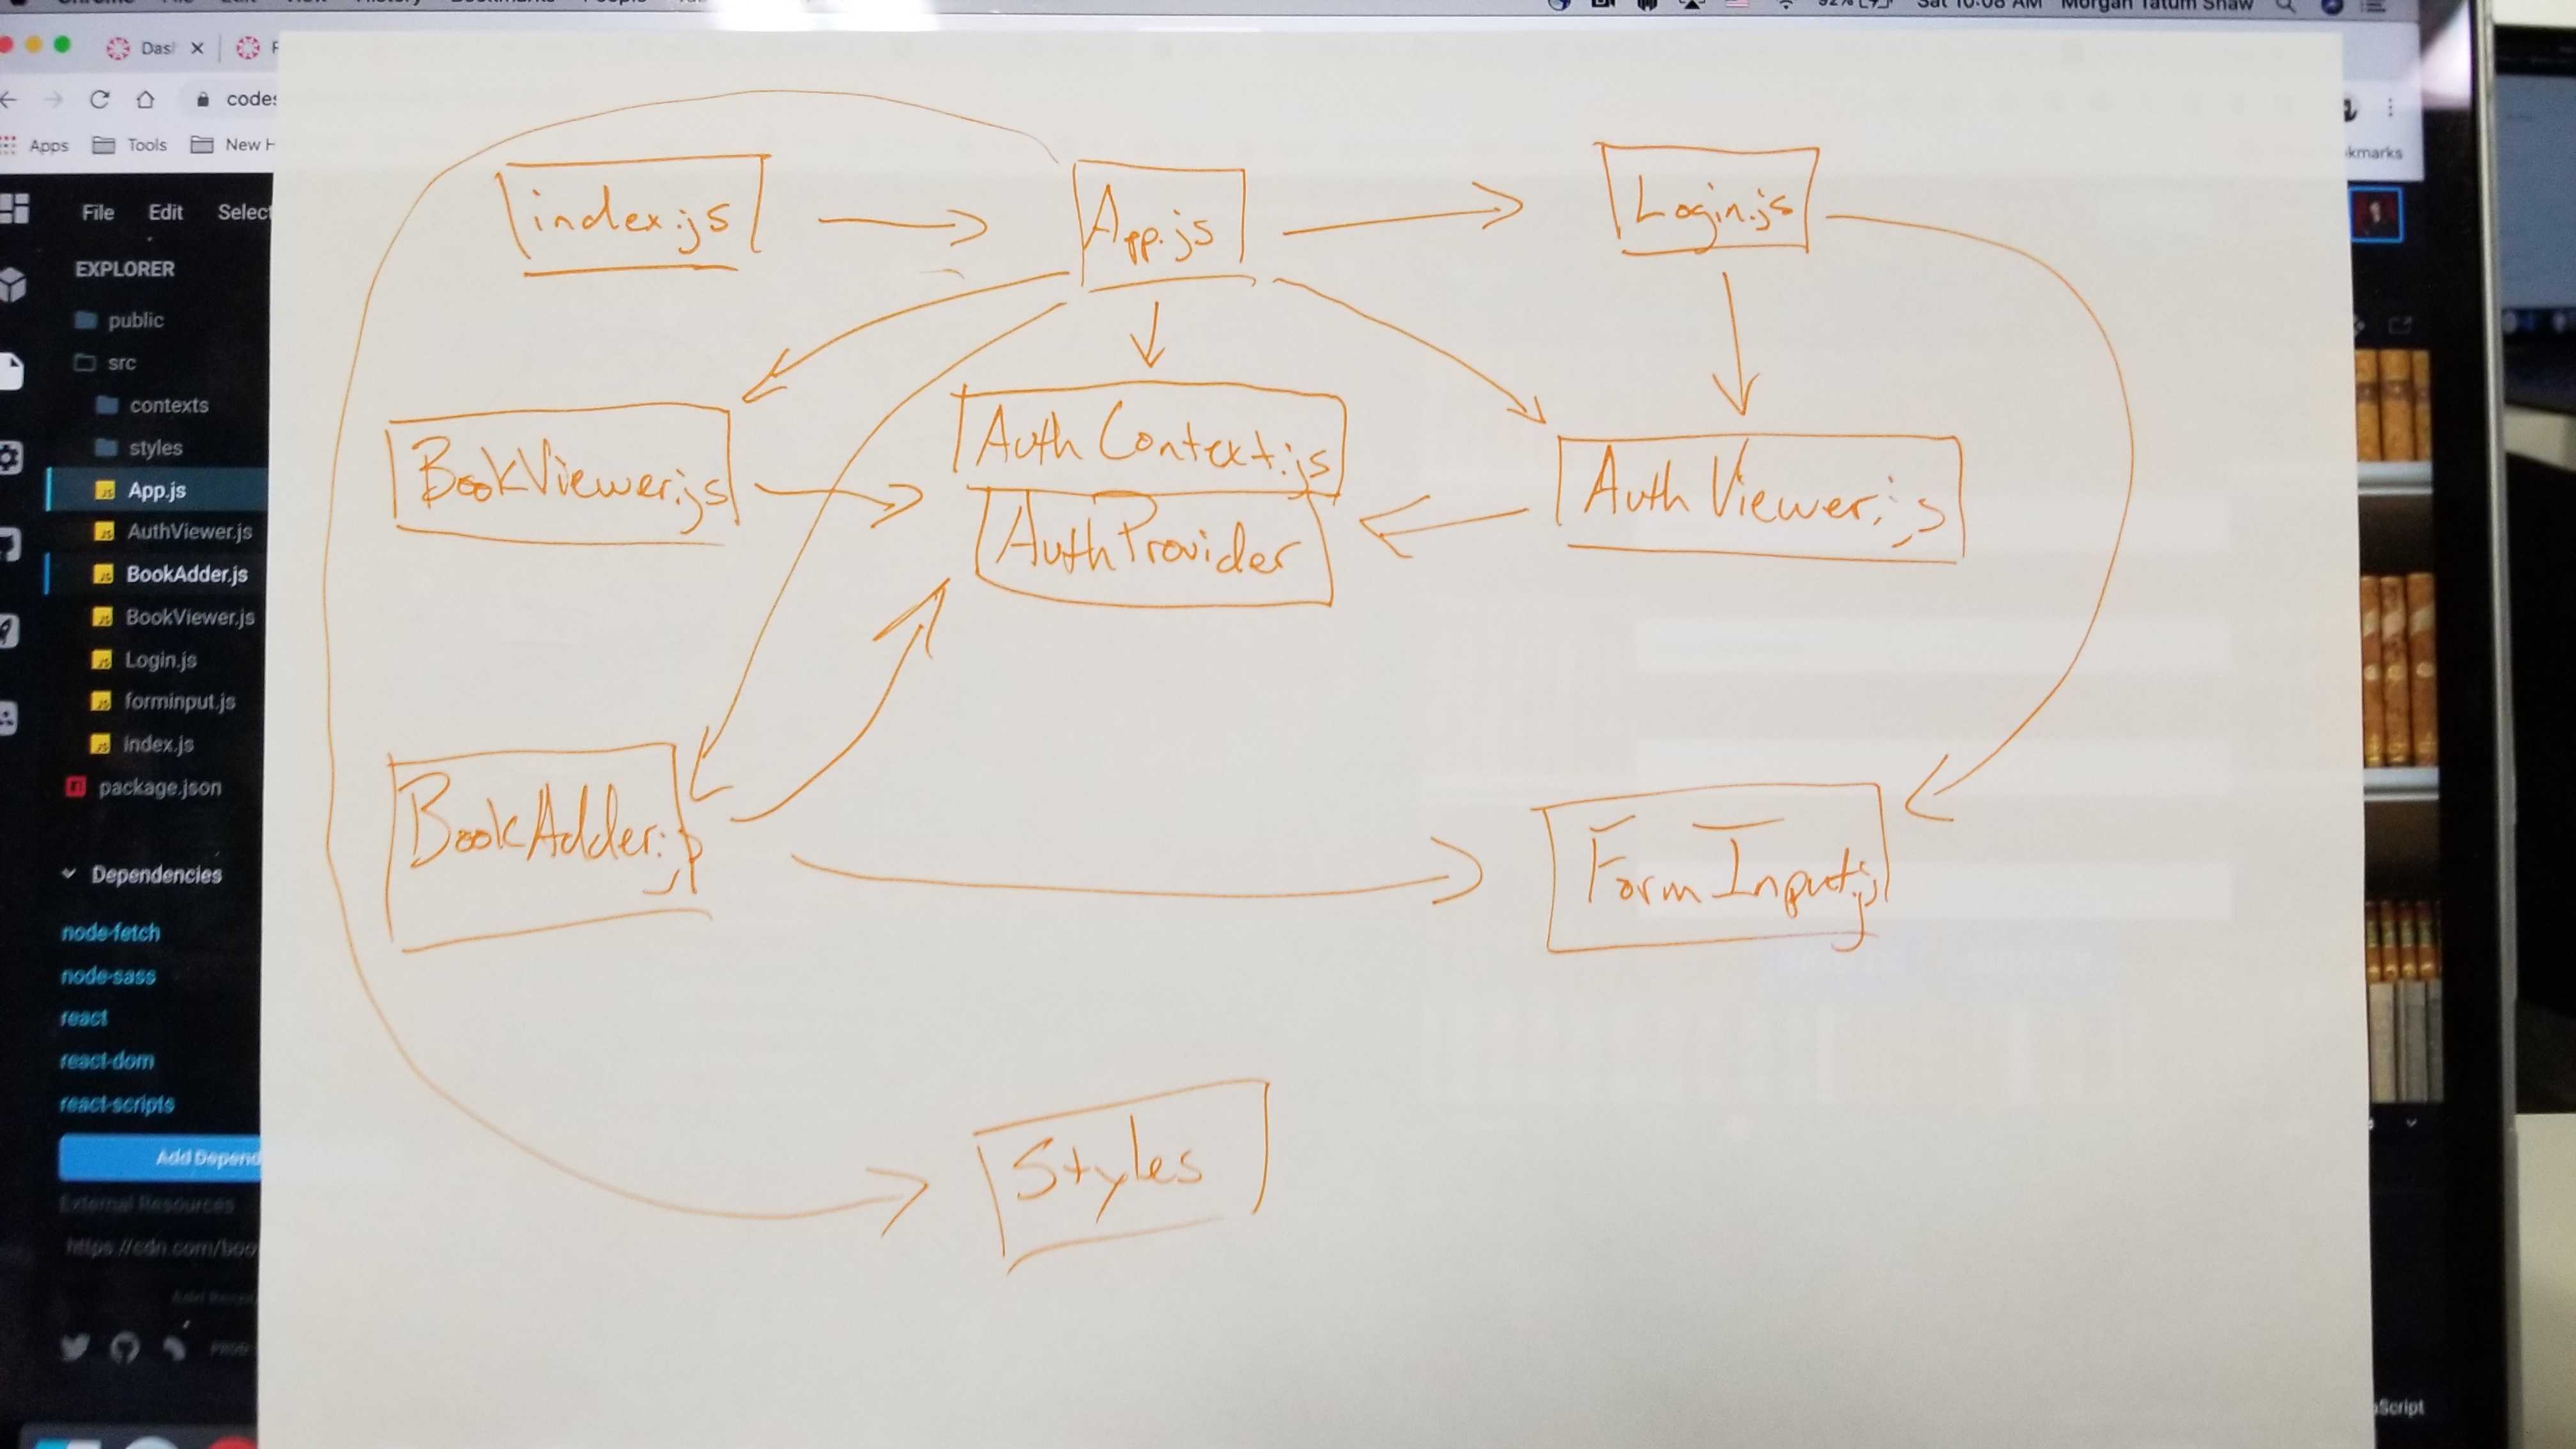 Sat 10:08 AM Morgan Tatum Shaw
Das
codes
Apps Tools New H
kmarks
File Edit Select
EXPLORER
public
src
contexts
styles
App.js
AuthViewer.js
BookAdder.js
BookViewer.js
Login.js
forminput.js
index.js
package.json
Dependencies
node-fetch
node-sass
react
react-dom
react-scripts
Add Depend
External Resources
https://cdn.com/boo
index.js
App.js
Login.js
BookViewer.js
Auth Context.js
AuthProvider
Auth Viewer.js
BookAdder.js
Form Input.js
Styles
Script